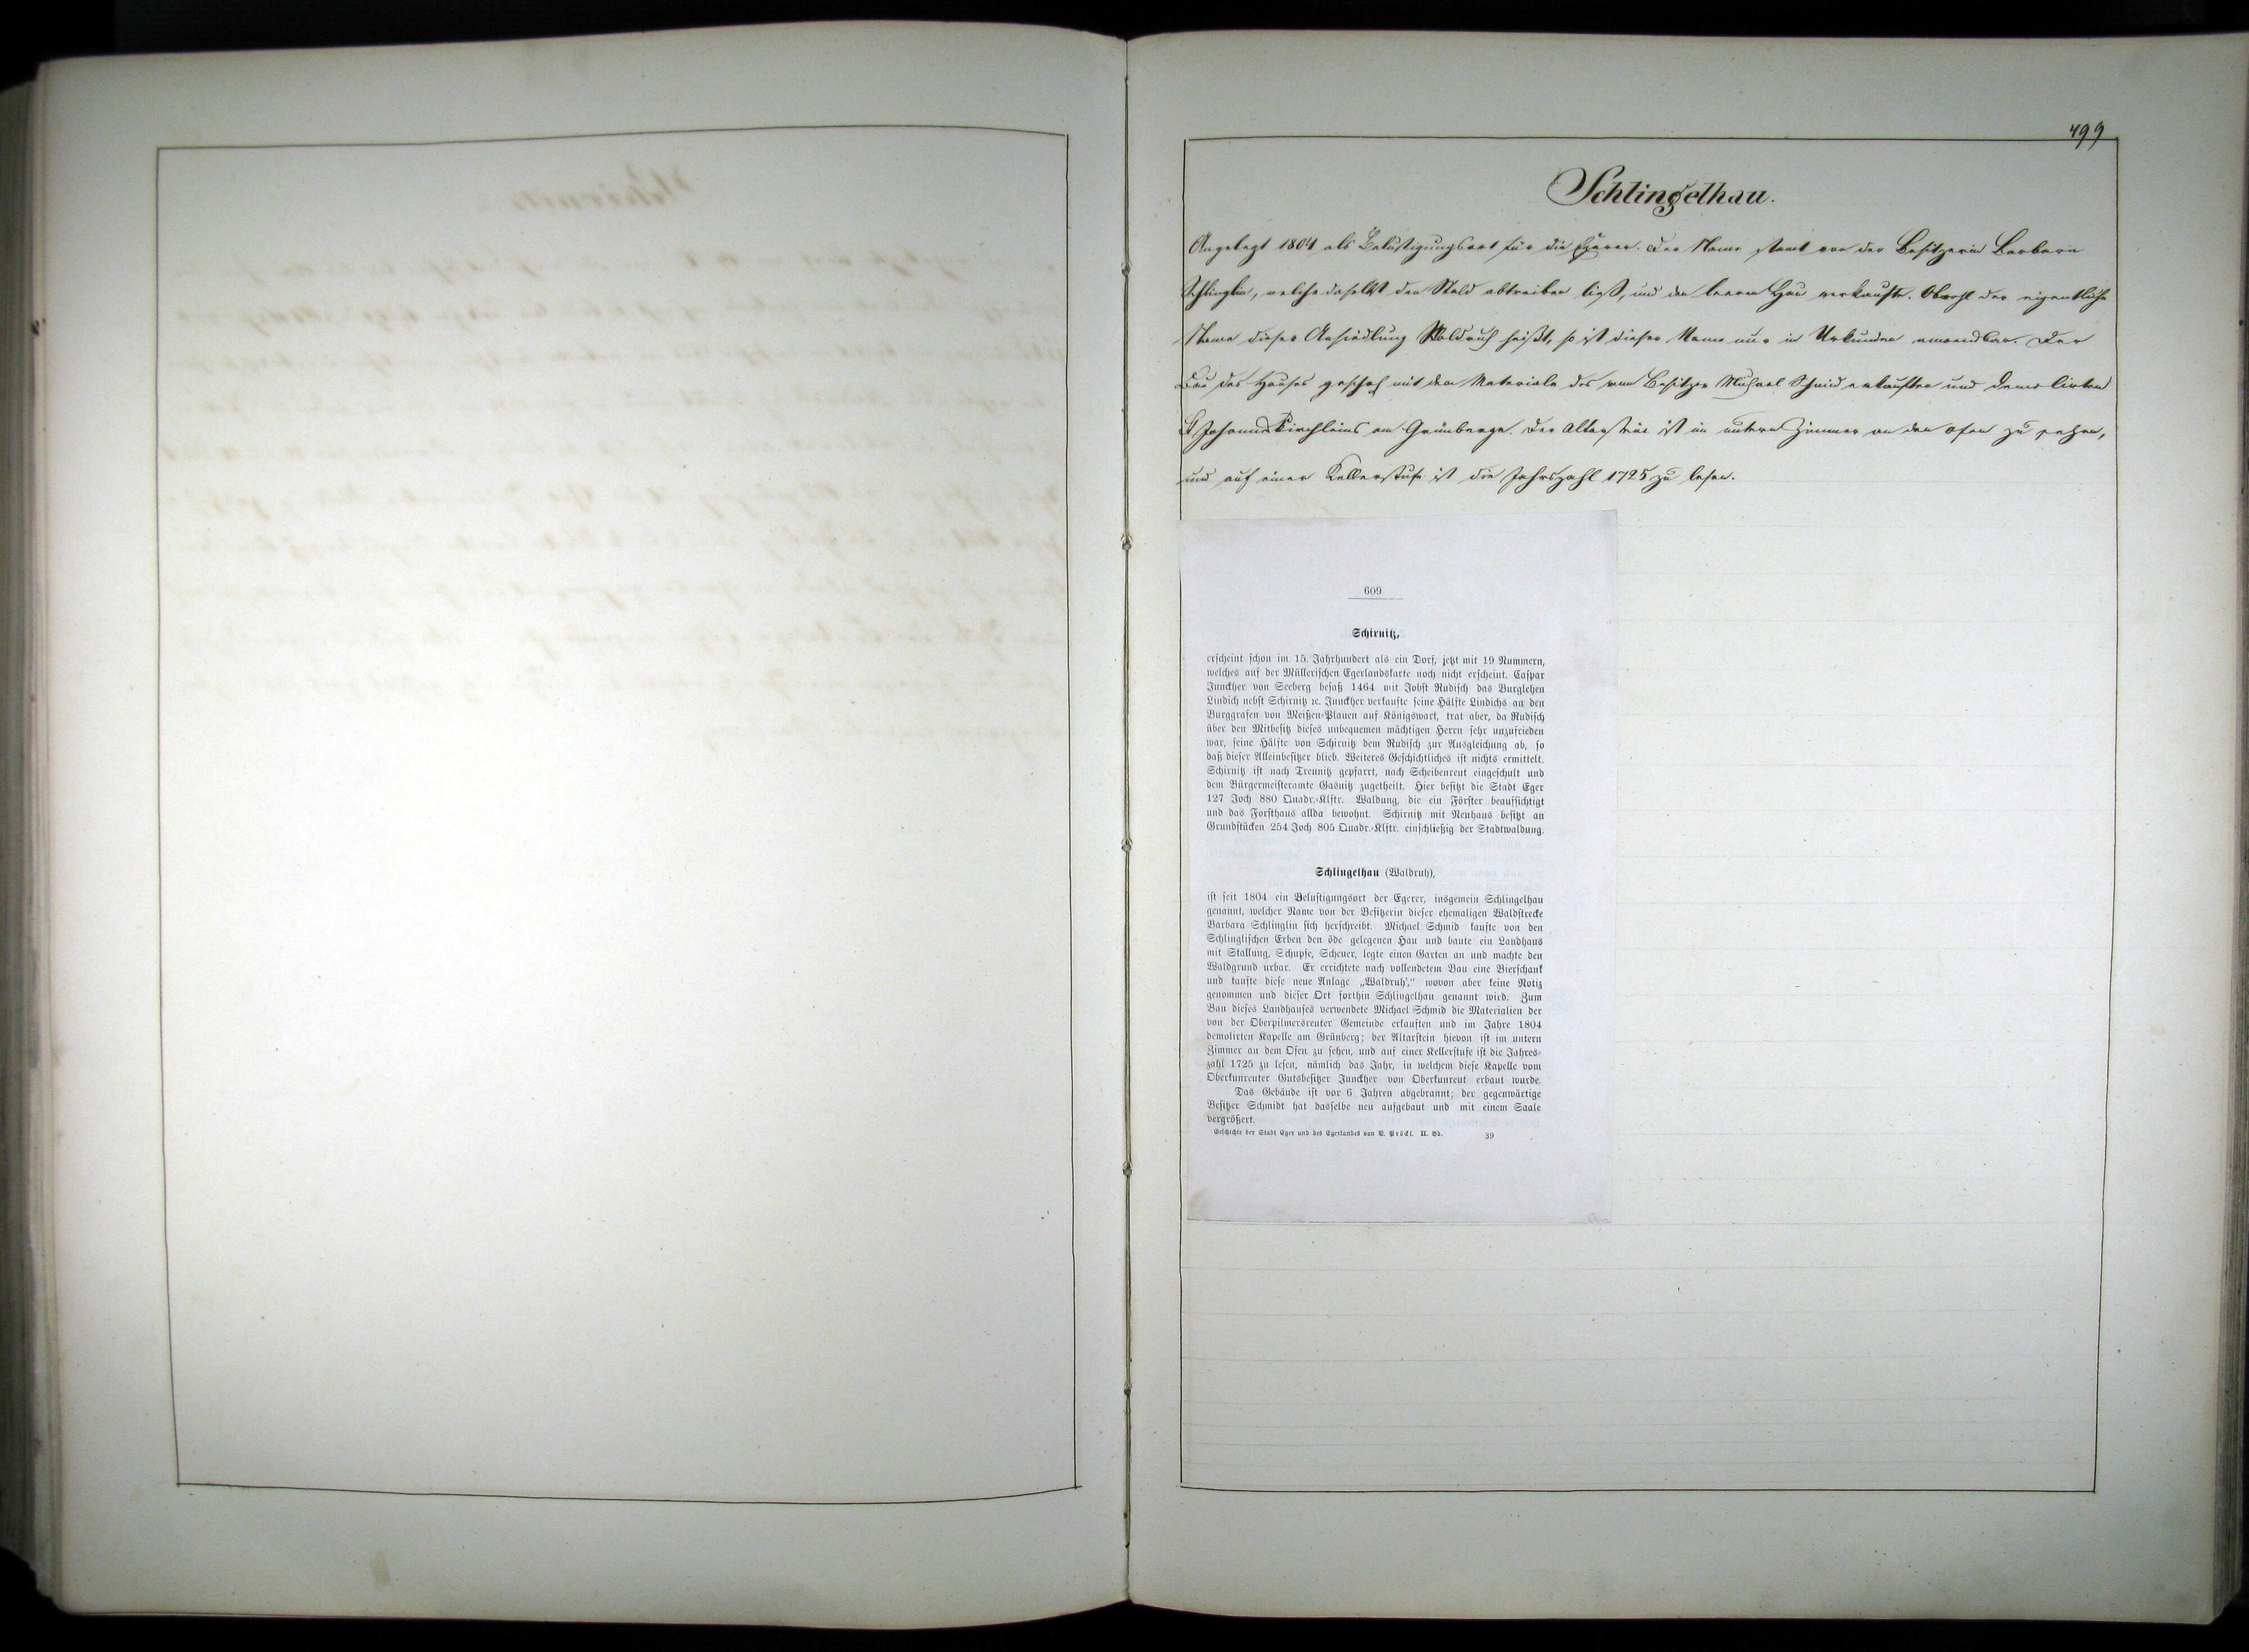 499
Schlingelhau.
Angelegt 1804 als Belustigungsort für die Egerer. Der Name stamt von der Besitzerin Barbara
Schlinglin, welche daselbst den Wald abtreiben ließ, und den leeren Hau verkaufte. Obwohl der eigentliche
Name dieser Ansiedlung Waldruh heißt, so ist dieser Name nur in Urkunden anwendbar. Der
Bau des Hauses geschah mit dem Materiale des vom Besitzer Michael Schmid erkauften und demolirten
St Johanneskirchleins am Grünberge. Der Altarstein ist im untern Zimmer an den Ofen zu sehen,
und auf einer Kellerstufe ist die Jahrszahl 1725 zu lesen.
609
Schirnitz,
erscheint schon im 15. Jahrhundert als ein Dorf, jetzt mit 19 Nummern,
welches auf der Müllerischen Egerlandskarte noch nicht erscheint. Caspar
Junckher von Seeberg besaß 1464 mit Jobst Rudisch das Burglehen
Lindich nebst Schirnitz ꝛc. Junckher verkaufte seine Hälfte Lindichs an den
Burggrafen von Meißen-Plauen auf Königswart, trat aber, da Rudisch
über den Mitbesitz dieses unbequemen mächtigen Herrn sehr unzufrieden
war, seine Hälfte von Schirnitz dem Rudisch zur Ausgleichung ab, so
daß dieser Alleinbesitzer blieb. Weiteres Geschichtliches ist nichts ermittelt.
Schirnitz ist nach Treunitz gepfarrt, nach Scheibenreut eingeschult und
dem Bürgermeisteramte Gasnitz zugetheilt. Hier besitzt die Stadt Eger
127 Joch 880 Quadr.-Klftr. Waldung, die ein Förster beaufsichtigt
und das Forsthaus allda bewohnt. Schirnitz mit Neuhaus besitzt an
Grundstücken 254 Joch 805 Quadr.-Klftr. einschließig der Stadtwaldung.
Schlingelhau (Waldruh),
ist seit 1804 ein Belustigungsort der Egerer, insgemein Schlingelhau
genannt, welcher Name von der Besitzerin dieser ehemaligen Waldstrecke
Barbara Schlinglin sich herschreibt. Michael Schmid kaufte von den
Schlinglischen Erben den öde gelegenen Hau und baute ein Landhaus
mit Stallung, Schupfe, Scheuer, legte einen Garten an und machte den
Waldgrund urbar. Er errichtete nach vollendetem Bau eine Bierschank
und taufte diese neue Anlage „Waldruh‘,“ wovon aber keine Notiz
genommen und dieser Ort forthin Schlingelhau genannt wird. Zum
Bau dieses Landhauses verwendete Michael Schmid die Materialien der
von der Oberpilmersreuter Gemeinde erkauften und im Jahre 1804
demolirten Kapelle am Grünberg; der Altarstein hievon ist im untern
Zimmer an dem Ofen zu sehen, und auf einer Kellerstufe ist die Jahres-
zahl 1725 zu lesen, nämlich das Jahr, in welchem diese Kapelle vom
Oberkunreuter Gutsbesitzer Junckher von Oberkunreut erbaut wurde.
Das Gebäude ist vor 6 Jahren abgebrannt; der gegenwärtige
Besitzer Schmidt hat dasselbe neu aufgebaut und mit einem Saale
vergrößert.
Geschichte der Stadt Eger und des Egerlandes von V. Pröckl. II. Bd. 39